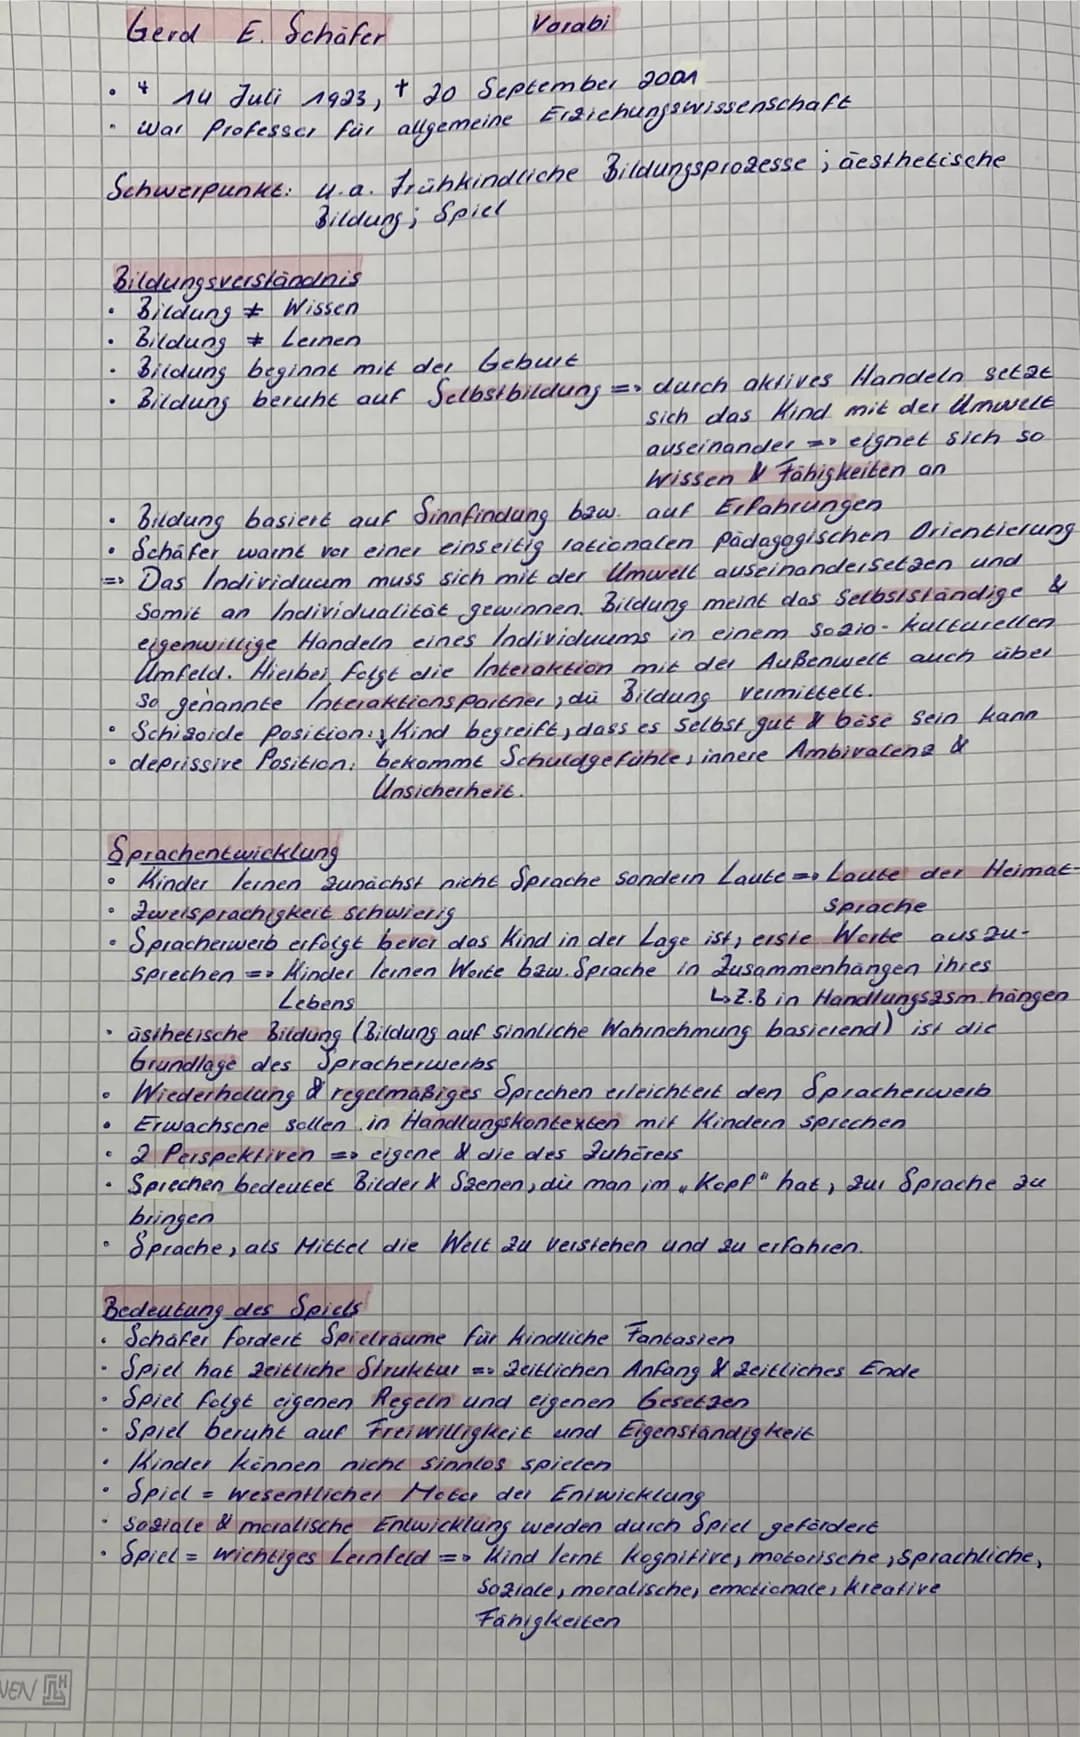 Gerd E. Schäfer Vorabi
• * 14 Juli 1923, † 20 September 2001
• War Professor für allgemeine Erziehungswissenschaft
Schwerpunkt: u.a. Frühkindliche Bildungsprozesse; äesthetische
Bildung; Spiel
Bildungsverständnis
• Bildung ≠ Wissen
• Bildung ≠ Lernen
• Bildung beginnt mit der Geburt
• Bildung beruht auf Selbstbildung => durch aktives Handeln setzt
sich das Kind mit der Umwelt
auseinander => eignet sich so
Wissen & Fähigkeiten an
• Bildung basiert auf Sinnfindung bzw. auf Erfahrungen
• Schäfer warnt vor einer einseitig rationalen pädagogischen Orientierung
=> Das Individuum muss sich mit der Umwelt auseinandersetzen und
somit an Individualität gewinnen. Bildung meint das selbstständige &
eigenwillige Handeln eines Individuums in einem sozio-kulturellen
Umfeld. Hierbei folgt die Interaktion mit der Außenwelt auch über
so genannte Interaktionspartner, die Bildung vermittelt.
• Schizoide Position: Kind begreift, dass es selbst gut & böse sein kann
• deprissive Position: bekommt Schuldgefühle, innere Ambivalenz &
Unsicherheit.
Sprachentwicklung
• Kinder lernen zunächst nicht Sprache sondern Laute => Laute der Heimat-
sprache
• Zweisprachigkeit schwierig
• Spracherwerb erfolgt bevor das Kind in der Lage ist, erste Worte auszu-
sprechen => Kinder lernen Worte bzw. Sprache in Zusammenhängen ihres
Lebens ↳ z.B in Handlungszsm.hängen
• ästhetische Bildung (Bildung auf sinnliche Wahrnehmung basierend) ist die
Grundlage des Spracherwerbs
• Wiederholung & regelmäßiges Sprechen erleichtert den Spracherwerb
• Erwachsene sollen in Handlungskontexten mit Kindern sprechen
• 2 Perspektiven => eigene & die des Zuhörers
• Sprechen bedeutet Bilder & Szenen, die man im „Kopf" hat, zur Sprache zu
bringen
• Sprache, als Mittel die Welt zu verstehen und zu erfahren.
Bedeutung des Spiels
• Schäfer fordert Spielräume für kindliche Fantasien
• Spiel hat zeitliche Struktur => zeitlichen Anfang & zeitliches Ende
• Spiel folgt eigenen Regeln und eigenen Gesetzen
• Spiel beruht auf Freiwilligkeit und Eigenständigkeit
• Kinder können nicht sinnlos spielen
• Spiel = wesentlicher Motor der Entwicklung
• soziale & moralische Entwicklung werden durch Spiel gefördert
• Spiel = wichtiges Lernfeld => Kind lernt kognitive, motorische, sprachliche,
soziale, moralische, emotionale, kreative
Fähigkeiten